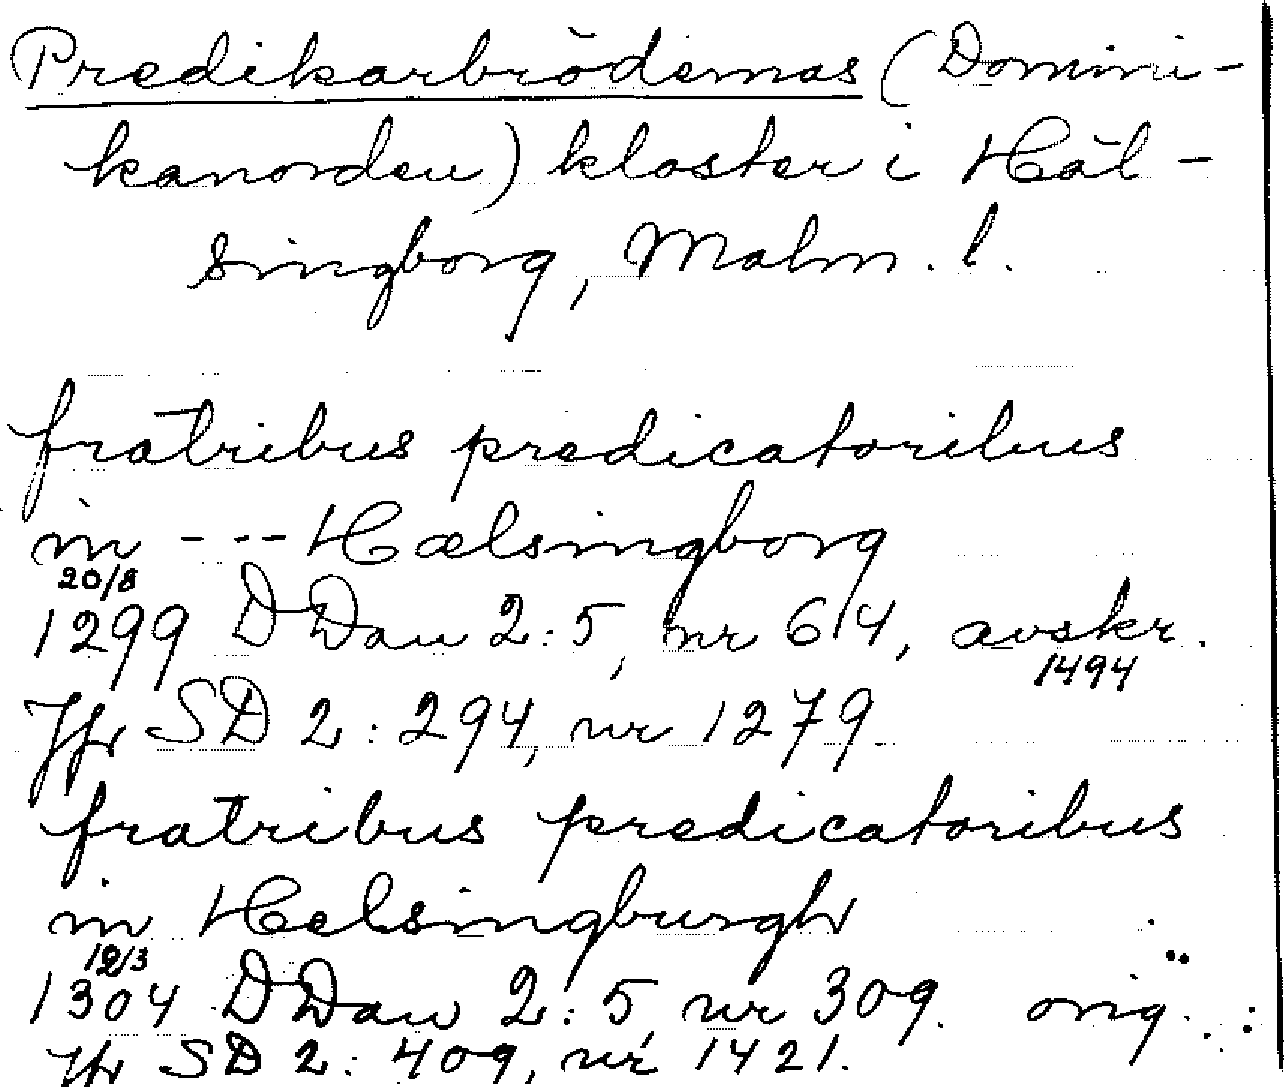 Predikarbrödernas (Domini-
kanorden) kloster i Häl-
singborg, Malm. l.
fratribus predicatoribus
in --- Hælsingborg
20/8
1299 DDan 2:5, nr 64, avskr.
1494
Jfr SD 2:294, nr 1279
fratribus predicatoribus
in Helsingburgh
12/3
1304 DDan 2:5, nr 309. orig.
Jfr SD 2:409, nr 1421.